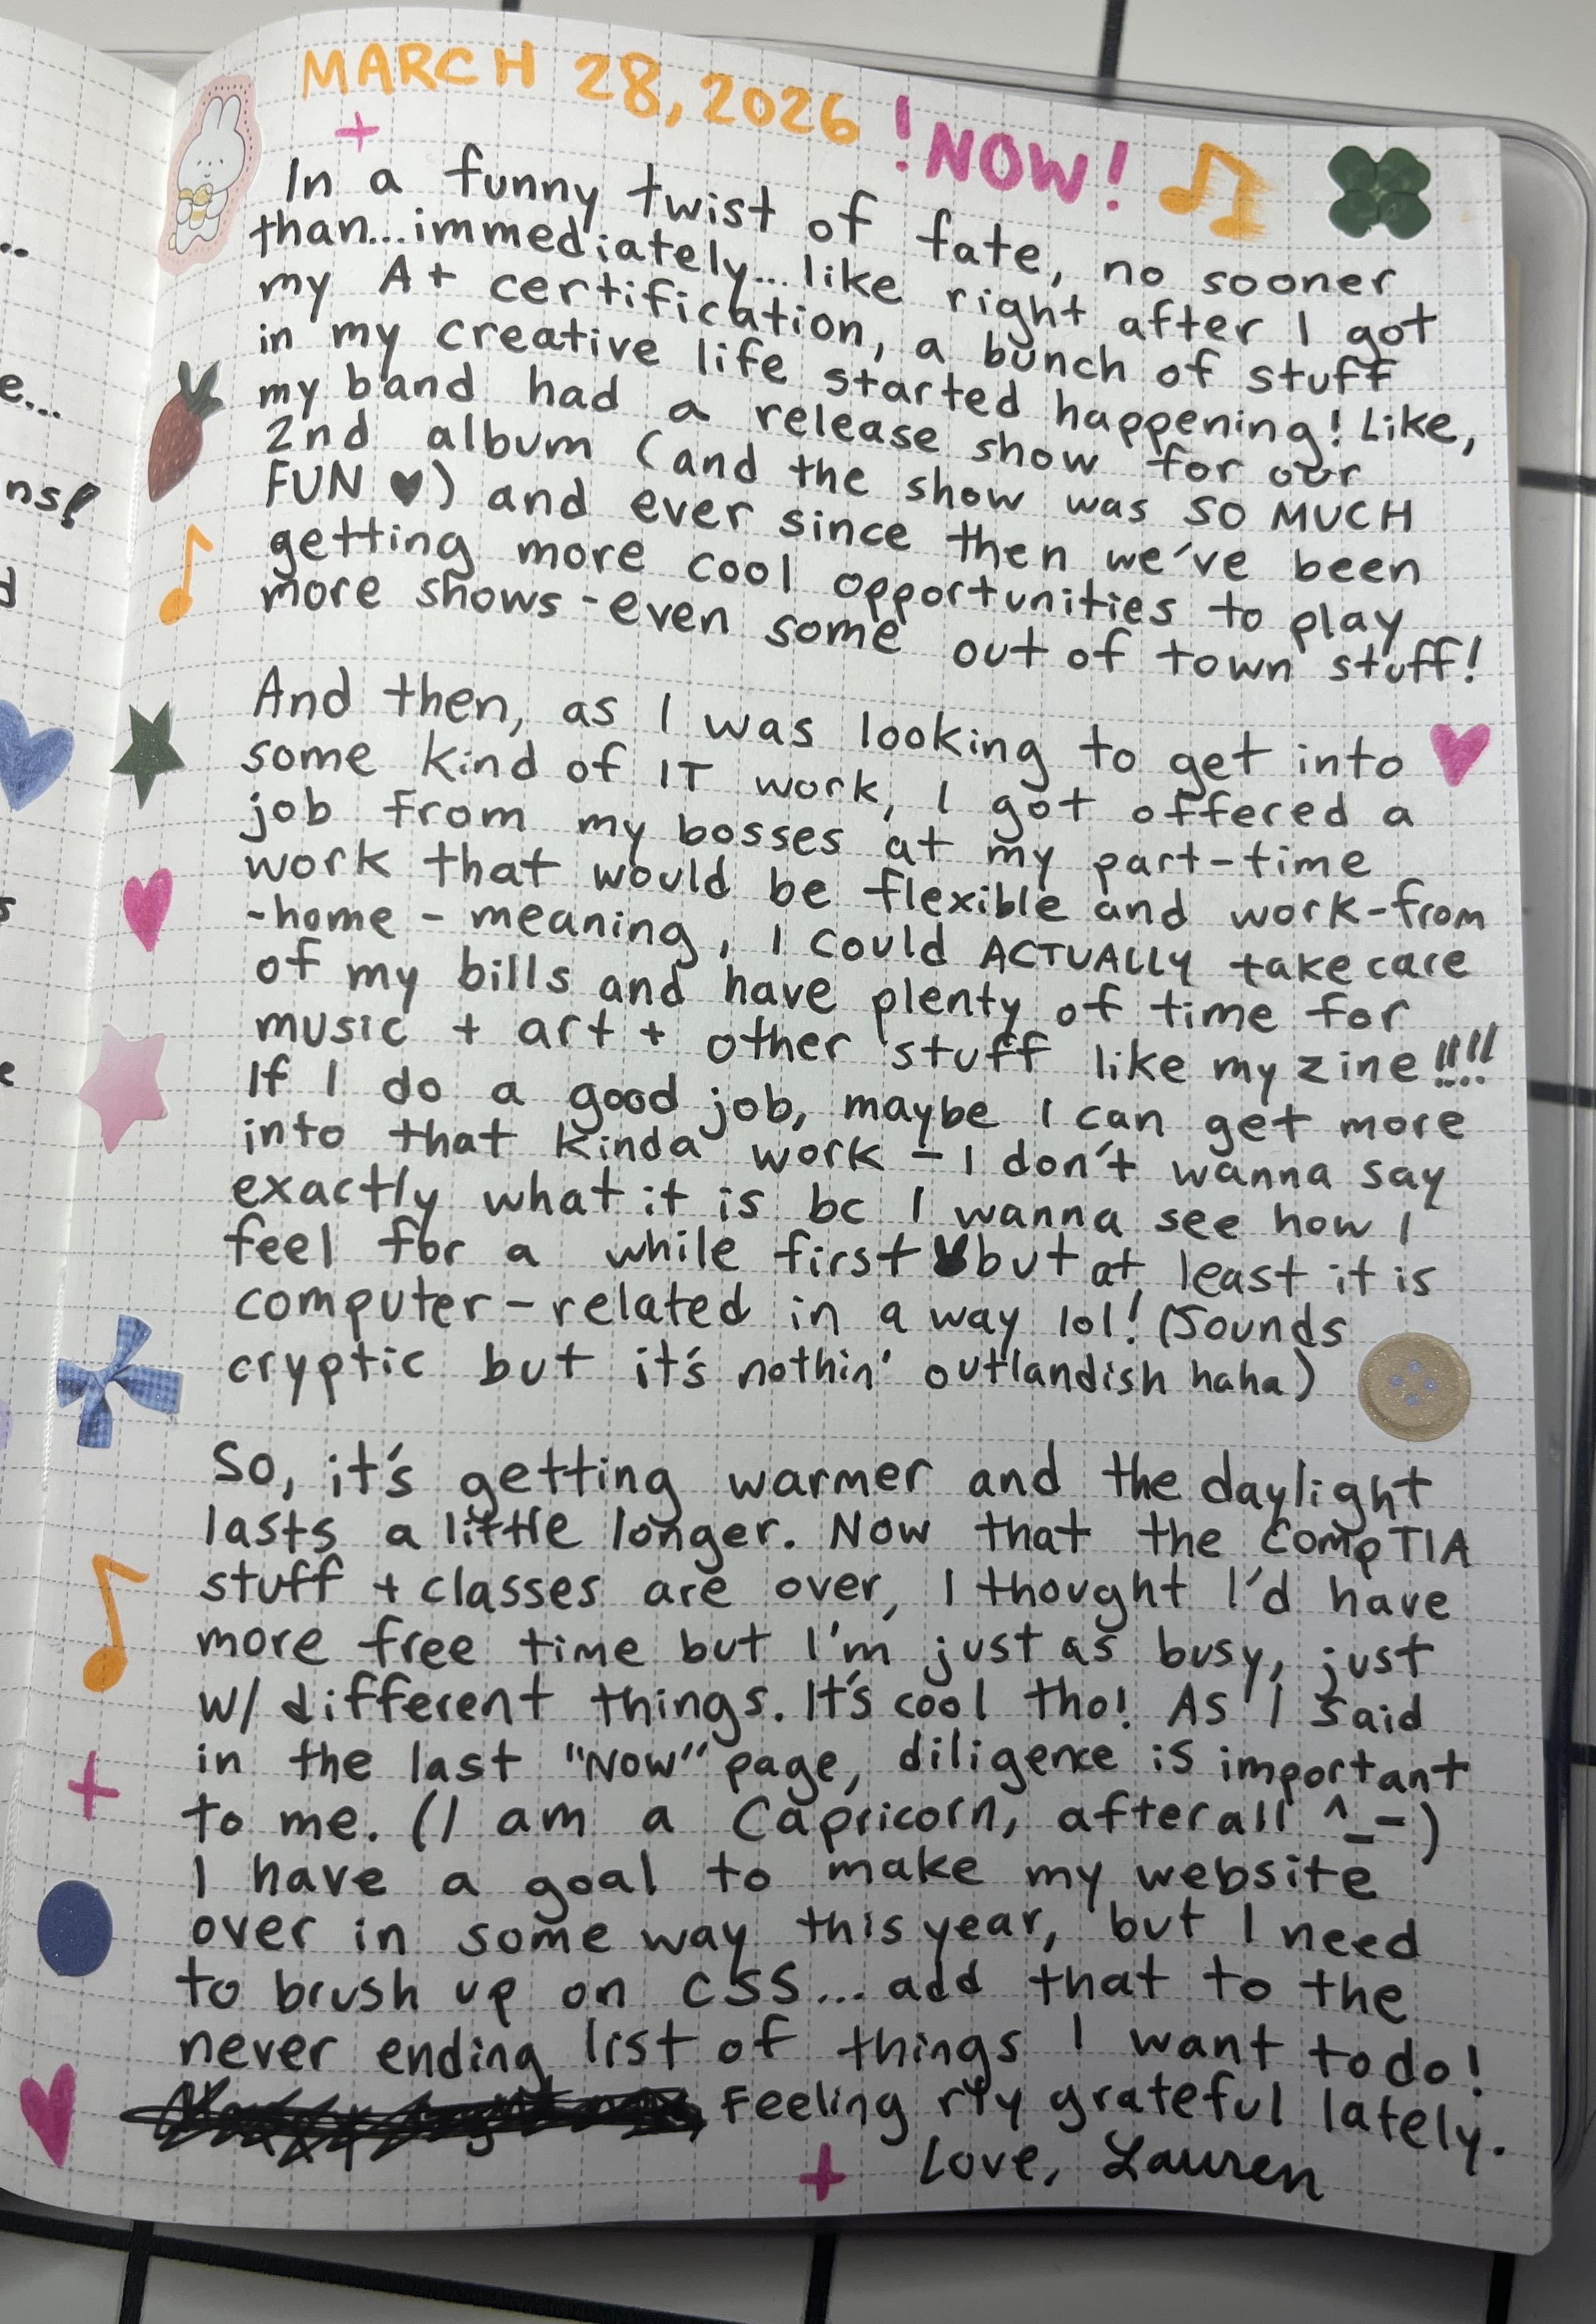 MARCH 28, 2026 !NOW!
In a funny twist of fate, no sooner
than...immediately...like right after I got
my A+ certification, a bunch of stuff
in my creative life started happening! Like,
my band had a release show for our
2nd album (and the show was SO MUCH
FUN ♥) and ever since then we've been
getting more cool opportunities to play
more shows - even some out of town stuff!
And then, as I was looking to get into
some kind of IT work, I got offered a
job from my bosses at my part-time
work that would be flexible and work-from
-home - meaning, I could ACTUALLY take care
of my bills and have plenty of time for
music + art + other stuff like my zine!!!!
If I do a good job, maybe I can get more
into that kinda work - I don't wanna say
exactly what it is bc I wanna see how I
feel for a while first but at least it is
computer-related in a way lol! (Sounds
cryptic but it's nothin' outlandish haha)
So, it's getting warmer and the daylight
lasts a little longer. Now that the CompTIA
stuff + classes are over, I thought I'd have
more free time but I'm just as busy, just
w/ different things. It's cool tho! As I said
in the last "Now" page, diligence is important
to me. (I am a Capricorn, after all ^_-)
I have a goal to make my website
over in some way this year, but I need
to brush up on CSS... add that to the
never ending list of things I want to do!
Feeling rly grateful lately.
Love, Lauren
e...
ns!
d
s
e